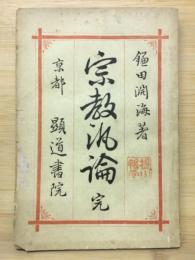 鎌田淵海著
宗教汎論 完
京都 顕道書院